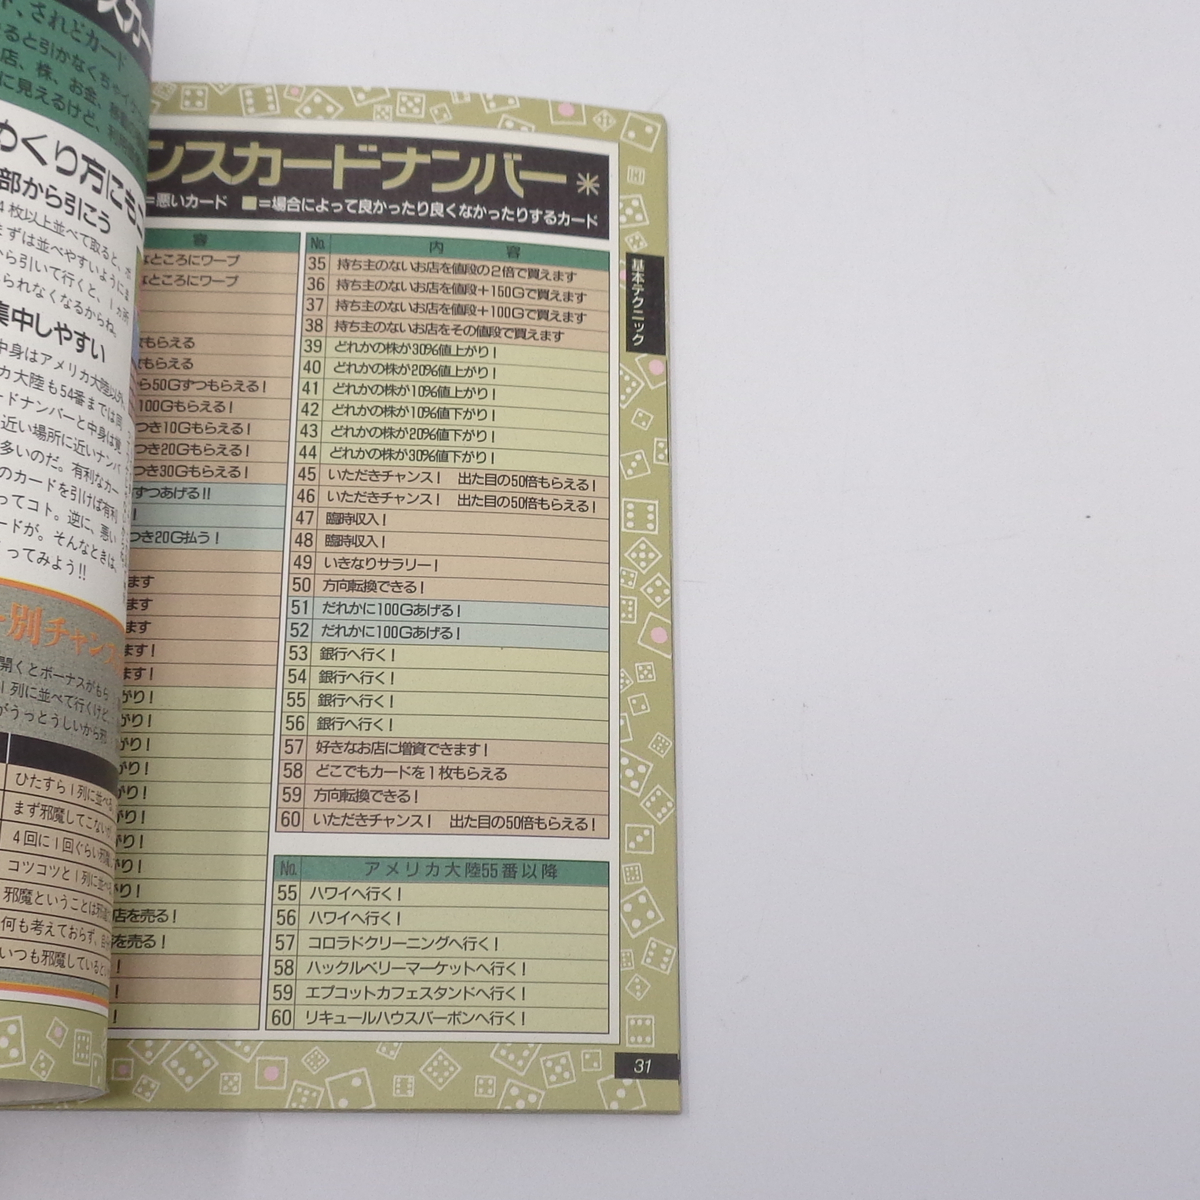 されどカード
ると引かなくちゃイケ
店、株、お金、
に見えるけど、
めくり方にもコ
部から引こう
4枚以上並べて取ると、
まずは並べやすいように
から引いて行くと、1ヵ所
られなくなるからね。
集中しやすい
中身はアメリカ大陸以外
カ大陸も54番までは同
ードナンバーと中身は覚
近い場所に近いナンバ
多いのだ。有利なカー
のカードを引けば有利
ってコト。逆に、悪い
ードが。そんなときは、
ってみよう!!
別チャンス
開くとボーナスがもら
1列に並べて行くけど、
がうっとうしいから邪
ひたすら1列に並べる
まず邪魔してこない
4回に1回ぐらい邪魔
コツコツと1列に並べ
邪魔ということは
何も考えておらず、自
いつも邪魔していると
ンスカードナンバー
=悪いカード ■=場合によって良かったり良くなかったりするカード
容
なところにワープ
なところにワープ
もらえる
もらえる
ら50Gずつもらえる!
100Gもらえる!
つき10Gもらえる!
つき20Gもらえる!
つき30Gもらえる!
ずつあげる!!
!
つき20G払う!
ます
ます
ます
ます!
ます!
がり!
がり!
がり!
がり!
がり!
がり!
がり!
がり!
がり!
店を売る!
を売る!
!
!
!
No. 内容
35 持ち主のないお店を値段の2倍で買えます
36 持ち主のないお店を値段+150Gで買えます
37 持ち主のないお店を値段+100Gで買えます
38 持ち主のないお店をその値段で買えます
39 どれかの株が30%値上がり!
40 どれかの株が20%値上がり!
41 どれかの株が10%値上がり!
42 どれかの株が10%値下がり!
43 どれかの株が20%値下がり!
44 どれかの株が30%値下がり!
45 いただきチャンス! 出た目の50倍もらえる!
46 いただきチャンス! 出た目の50倍もらえる!
47 臨時収入!
48 臨時収入!
49 いきなりサラリー!
50 方向転換できる!
51 だれかに100Gあげる!
52 だれかに100Gあげる!
53 銀行へ行く!
54 銀行へ行く!
55 銀行へ行く!
56 銀行へ行く!
57 好きなお店に増資できます!
58 どこでもカードを1枚もらえる
59 方向転換できる!
60 いただきチャンス! 出た目の50倍もらえる!
No. アメリカ大陸55番以降
55 ハワイへ行く!
56 ハワイへ行く!
57 コロラドクリーニングへ行く!
58 ハックルベリーマーケットへ行く!
59 エプコットカフェスタンドへ行く!
60 リキュールハウスバーボンへ行く!
基本テクニック
31